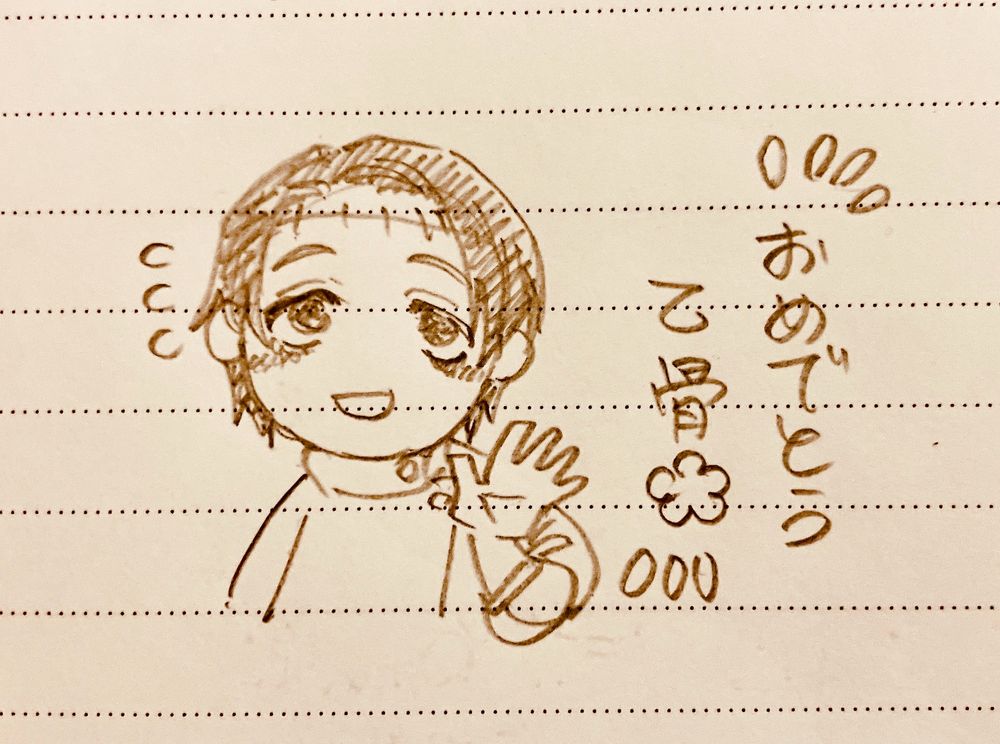 おめでとう
乙骨